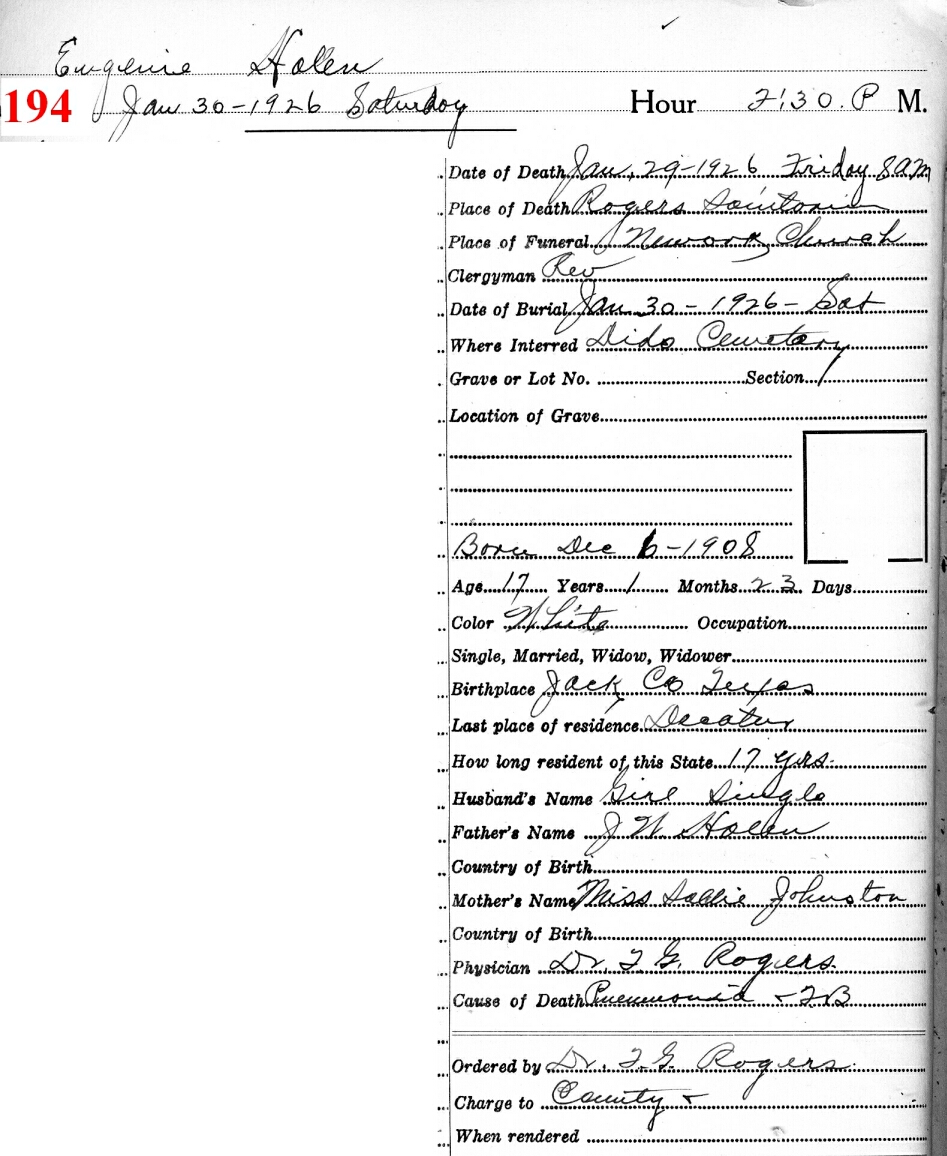 Eugenie Holen
194 Jan 30-1926 Saturday Hour 2:30 P M.
Date of Death Jan. 29-1926 Friday 8 AM
Place of Death Rogers Sanitarium
Place of Funeral Newark Church
Clergyman Rev
Date of Burial Jan 30-1926-Sat
Where Interred Dido Cemetary
Grave or Lot No. Section
Location of Grave
Born Dec 6-1908
Age 17 Years 1 Months 23 Days
Color White Occupation
Single, Married, Widow, Widower
Birthplace Jack Co Texas
Last place of residence Decatur
How long resident of this State 17 yrs.
Husband's Name Girl Single
Father's Name J W Holen
Country of Birth
Mother's Name Miss Sallie Johnston
Country of Birth
Physician Dr. T G. Rogers.
Cause of Death Pneumonia + TB
Ordered by Dr. T. G. Rogers
Charge to County
When rendered